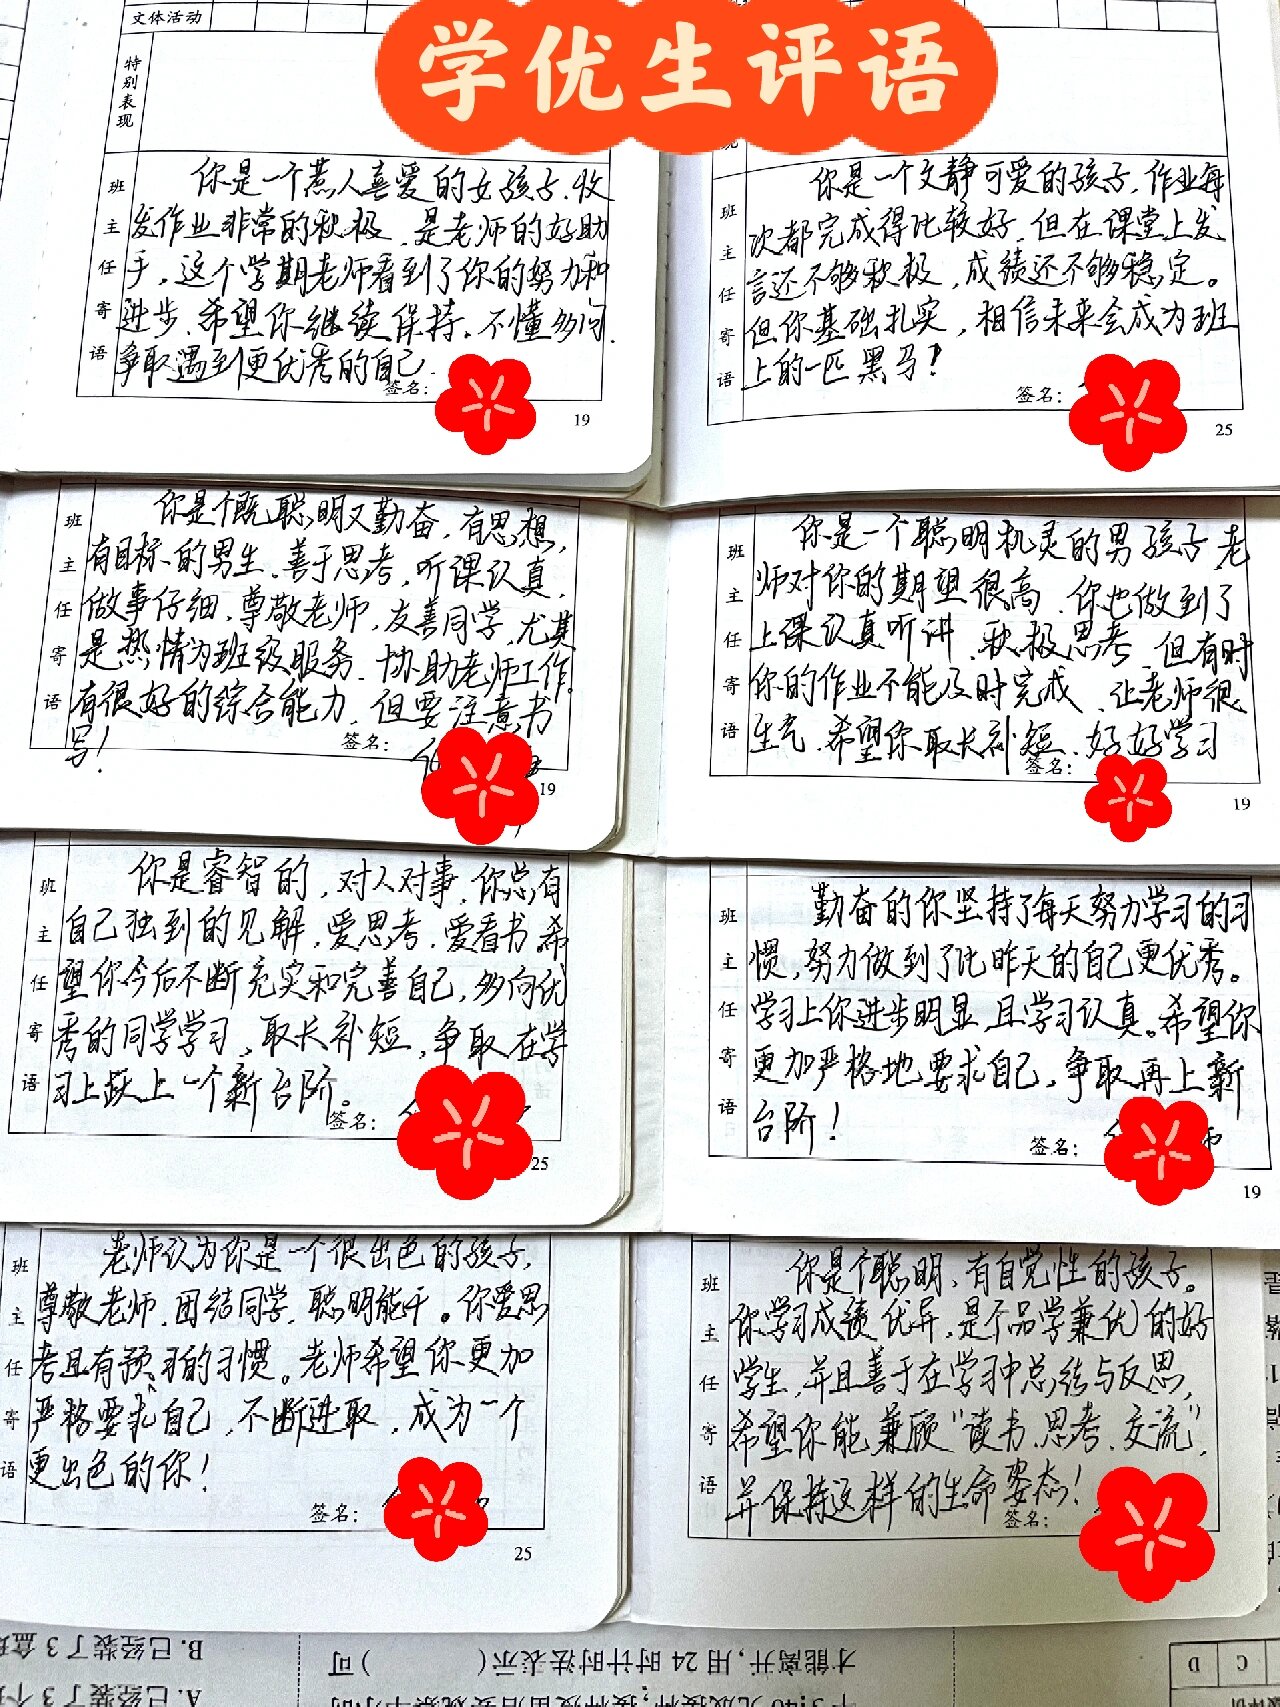 文体活动
学优生评语
特别表现
班主任寄语
你是一个惹人喜爱的女孩子,收
发作业非常的积极,是老师的好助
手,这个学期老师看到了你的努力和
进步,希望你继续保持,不懂多问,
争取遇到更优秀的自己.
签名:
19
班主任寄语
你是一个文静可爱的孩子,作业每
次都完成得比较好,但在课堂上发
言还不够积极,成绩还不够稳定。
但你基础扎实,相信未来会成为班
上的一匹黑马!
签名:
25
班主任寄语
你是个既聪明又勤奋,有思想,
有目标的男生,善于思考,听课认真,
做事仔细,尊敬老师,友善同学,尤其
是热情为班级服务,协助老师工作,
有很好的综合能力,但要注意书
写!
签名:
19
班主任寄语
你是一个聪明机灵的男孩子老
师对你的期望很高,你也做到了
上课认真听讲,积极思考,但有时
你的作业不能及时完成,让老师很
生气,希望你取长补短,好好学习
签名:
19
班主任寄语
你是睿智的,对人对事,你总有
自己独到的见解,爱思考,爱看书,希
望你今后不断充实和完善自己,多向优
秀的同学学习,取长补短,争取在学
习上跃上一个新台阶。
签名:
25
班主任寄语
勤奋的你坚持了每天努力学习的习
惯,努力做到了比昨天的自己更优秀。
学习上你进步明显,且学习认真。希望你
更加严格地要求自己,争取再上新
台阶!
签名:
19
班主任寄语
老师认为你是一个很出色的孩子,
尊敬老师,团结同学,聪明能干。你爱思
考且有预习的习惯。老师希望你更加
严格要求自己,不断进取,成为一个
更出色的你!
签名:
25
班主任寄语
你是个聪明、有自觉性的孩子。
你学习成绩优异,是个品学兼优的好
学生,并且善于在学习中总结与反思,
希望你能兼顾“读书、思考、交流”,
并保持这样的生命姿态!
签名:
B.已经装了3盒
A.已经装了3个
才能离开,用24时计时法表示(  )可
D C